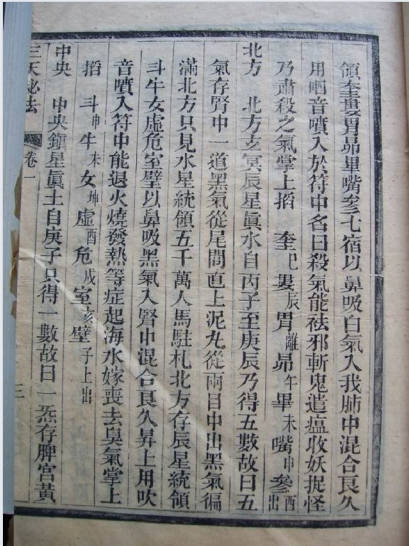 領奎婁胃昴畢嘴參七宿以鼻吸白氣入我肺中混合良久
用呬音噴入於符中名曰殺氣能祛邪斬鬼遣瘟收妖捉怪
乃肅殺之氣掌上掐奎巳婁辰胃離昴午畢未嘴申參酉出
北方 北方玄冥辰星眞水自丙子至庚辰乃得五數故曰五
氣存腎中一道黑氣從尾閭直上泥丸從兩目中出黑氣徧
滿北方只見水星統領五千萬人馬駐札北方存辰星統領
斗牛女虛危室壁以鼻吸黑氣入腎中混合良久昇上用吹
音噴入符中能退火燒發熱等症起海水嫁喪去臭氣掌上
掐斗申牛未女坤虛酉危戌室亥壁子上出
中央 中央鎭星眞土自庚子只得一數故曰一炁存脾宮黃
三天祕法 卷一 三